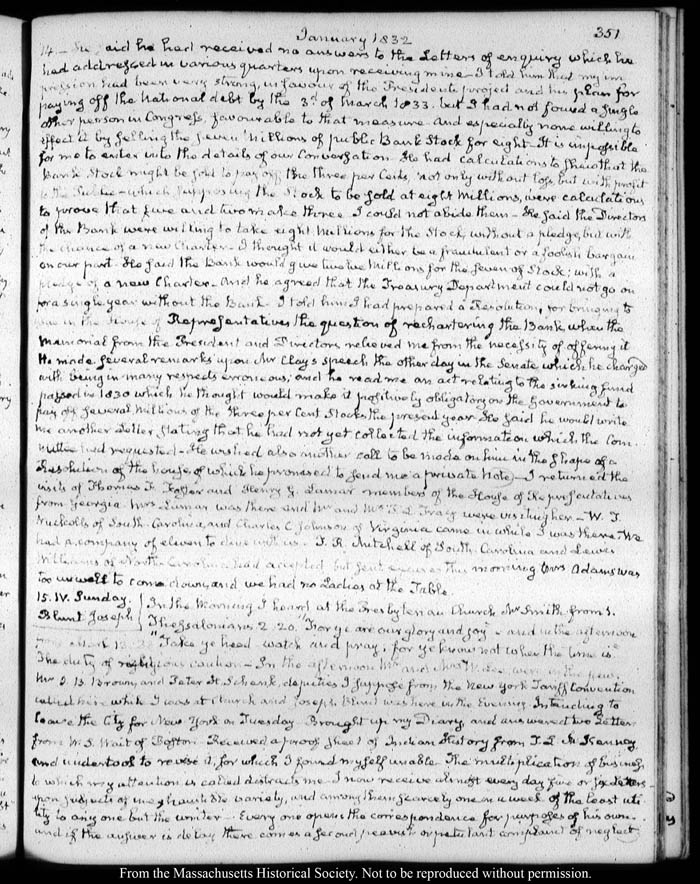 January 1832
351
14. — He said he had received no answers to the Letters of enquiry which he
had addressed in various quarters upon receiving mine — I told him that my im
pression had been very strong, in favour of the President's project and his plan for
paying off the National debt by the 3d of March 1833. but I had not found a single
other person in Congress, favourable to that measure and especially none willing to
effect it by selling the seven Millions of public Bank Stock for eight. It is impossible
for me to enter into the details of our Conversation. He had calculations to shew that the
Bank Stock might be sold to pay off the three per Cents, not only without loss, but with profit
to the Public — which supposing the Stock to be sold at eight Millions, were calculations
to prove that two and two make three. I could not abide them — He said the Directors
of the Bank were willing to take eight Millions for the Stock, without a pledge, but with
the chance of a new Charter. I thought it would either be a fraudulent or a foolish bargain
on our part. He said the Bank would give twelve Millions for the seven of Stock; with a
pledge of a new Charter. And he agreed that the Treasury Department could not go on
for a single year without the Bank. I told him I had prepared a Resolution, for bringing to
issue in the House of Representatives the question of rechartering the Bank, when the
Memorial from the President and Directors relieved me from the necessity of offering it
He made several remarks upon Mr Clay's speech the other day in the Senate which he charged
with being in many respects erroneous; and he read me an act relating to the sinking fund
passed in 1830 which he thought would make it positively obligatory on the Government to
pay off several Millions of the three per Cent Stocks the present year. He said he would write
me another Letter stating that he had not yet collected the information which the Com-
mittee had requested. He wished also another call to be made on him in the shape of a
Resolution of the house, of which he promised to send me a private Note — I returned the
visits of Thomas F. Foster and Henry G. Lamar members of the House of Representatives
from Georgia. Mrs Lamar was there and Mr and Mrs Tracy were visiting her. — W. T.
Nuckolls of South-Carolina, and Charles C. Johnson of Virginia came in while I was there. We
had a company of eleven to dine with us. T. R. Mitchell of South Carolina and Lewis
Williams of North Carolina had accepted but sent excuses this morning Mrs Adams was
too unwell to come down, and we had no Ladies at the Table.
15. IV. Sunday. In the Morning I heard at the Presbyterian Church Mr Smith from 1.
Blunt Joseph Thessalonians 2. 20. "For ye are our glory and joy" — and in the afternoon
from Mark 13. "Take ye heed watch and pray; for ye know not when the time is"
The duty of religious caution — In the afternoon Mr and Mrs were in the pew,
Mr J. B. Brown, and Peter H. Schenk, deputies I suppose from the New York Tariff Convention
called here while I was at Church and Joseph Blunt was here in the Evening. Intending to
leave the City for New York on Tuesday. Brought up my Diary, and answered two Letters
from W. S. Wait of Boston. Received a proof sheet of Indian History from T. L. McKenney
and undertook to revise it, for which I found myself unable. The multiplication of business
to which my attention is called distracts me. I now receive almost every day five or six Letters
upon subjects of inexhaustible variety, and among them scarcely one in a week of the least uti
lity to any one but the writer. Every one opens the correspondence for purposes of his own
and if the answer is delay'd there comes a second peevish or petulant complaint of neglect
From the Massachusetts Historical Society. Not to be reproduced without permission.